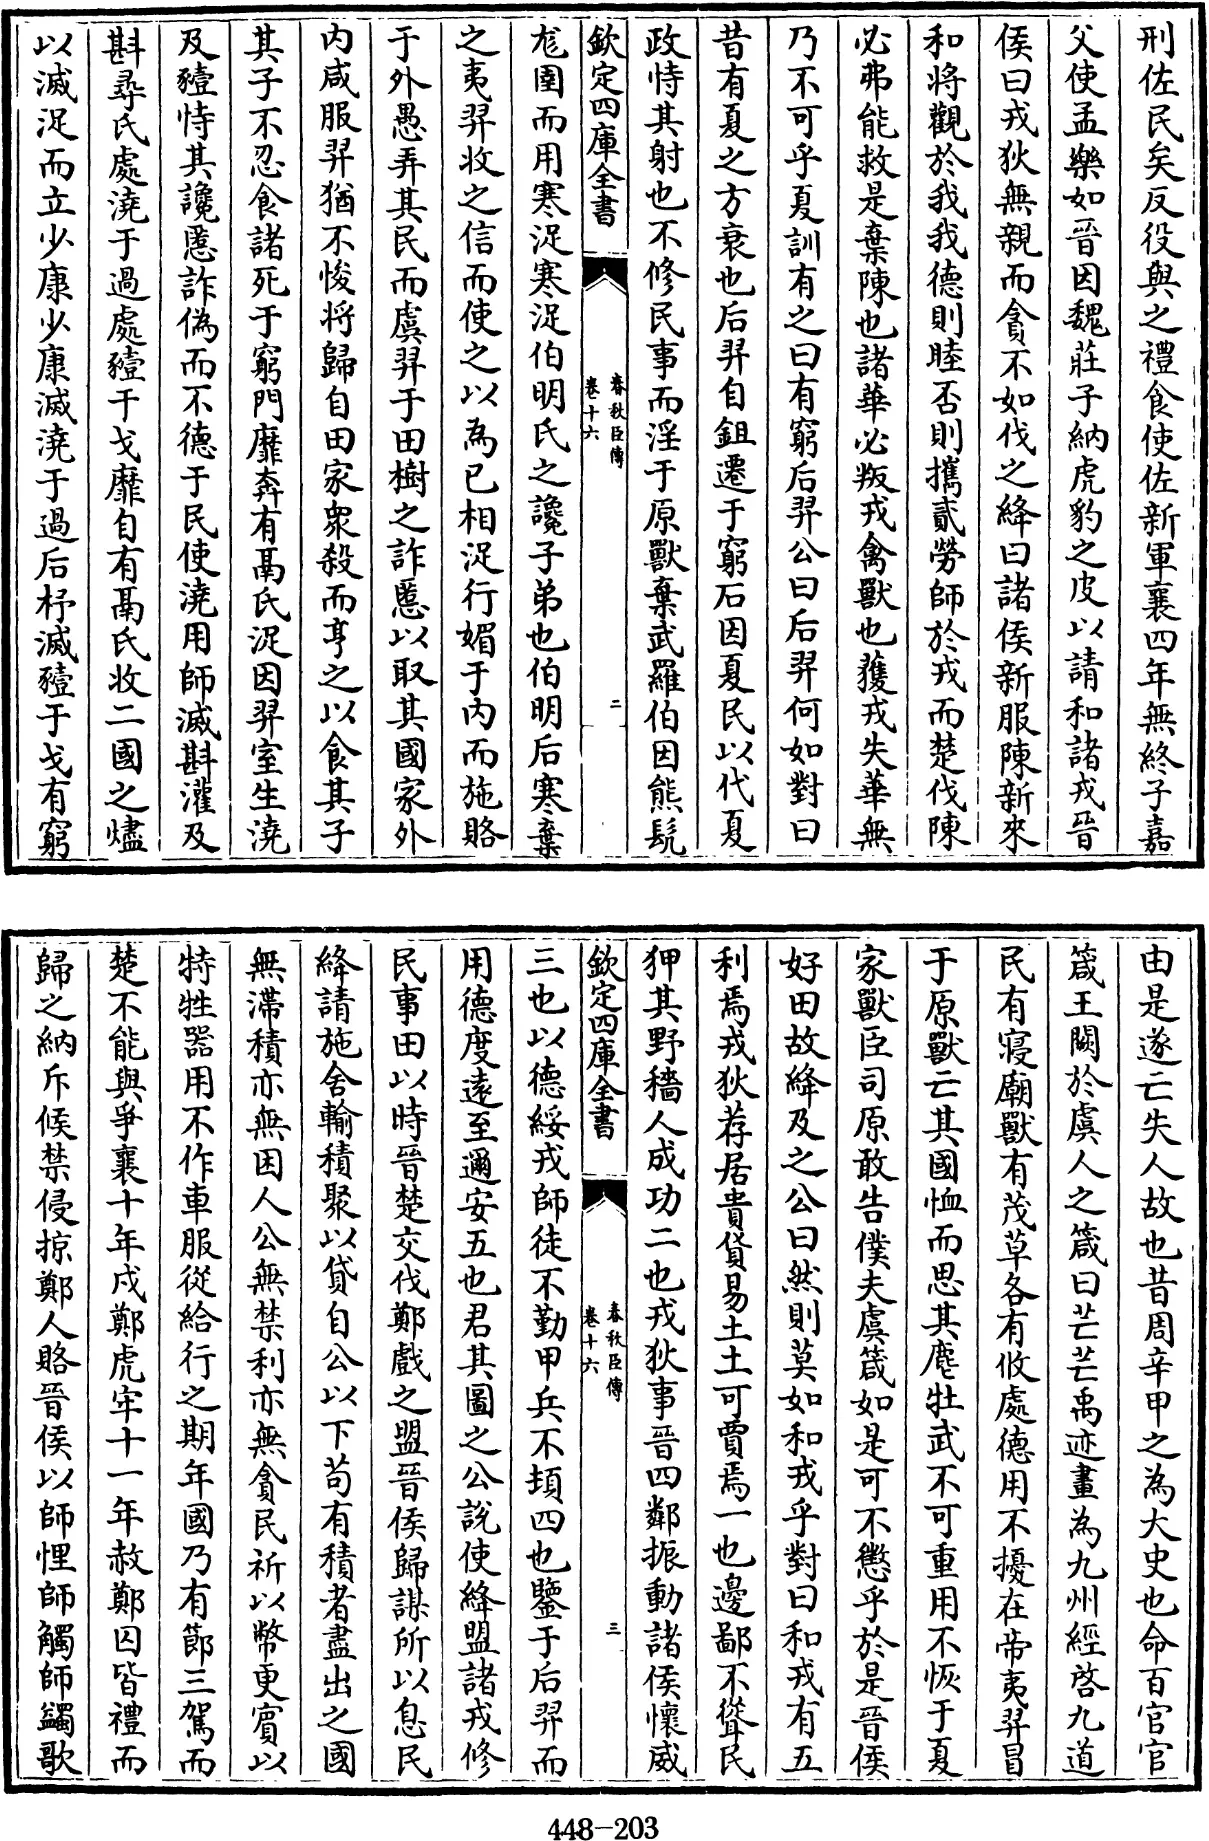 刑佐民矣反役與之禮食使佐新軍襄四年無終子嘉
父使孟樂如晉因魏莊子納虎豹之皮以請和諸戎晉
侯曰戎狄無親而貪不如伐之絳曰諸侯新服陳新來
和將觀於我我德則睦否則攜貳勞師於戎而楚伐陳
必弗能救是棄陳也諸華必叛戎禽獸也獲戎失華無
乃不可乎夏訓有之曰有窮后羿公曰后羿何如對曰
昔有夏之方衰也后羿自鉏遷于窮石因夏民以代夏
政恃其射也不修民事而淫于原獸棄武羅伯因熊髠
欽定四庫全書
春秋臣傳
卷十六
二
尨圉而用寒浞寒浞伯明氏之讒子弟也伯明后寒棄
之夷羿收之信而使之以為已相浞行媚于内而施賂
于外愚弄其民而虞羿于田樹之詐慝以取其國家外
内咸服羿猶不悛将歸自田家衆殺而亨之以食其子
其子不忍食諸死于窮門靡奔有鬲氏浞因羿室生澆
及豷恃其讒慝詐偽而不德于民使澆用師滅斟灌及
斟尋氏處澆于過處豷干戈靡自有鬲氏收二國之燼
以滅浞而立少康少康滅澆于過后杼滅豷于戈有窮
由是遂亡失人故也昔周辛甲之為大史也命百官官
箴王闕於虞人之箴曰芒芒禹迹畫為九州經啓九道
民有寢廟獸有茂草各有攸處德用不擾在帝夷羿冒
于原獸亡其國恤而思其麀牡武不可重用不恢于夏
家獸臣司原敢告僕夫虞箴如是可不懲乎於是晉侯
好田故絳及之公曰然則莫如和戎乎對曰和戎有五
利焉戎狄荐居貴貨易土土可賈焉一也邊鄙不聳民
狎其野穡人成功二也戎狄事晉四鄰振動諸侯懷威
欽定四庫全書
春秋臣傳
卷十六
三
三也以德綏戎師徒不勤甲兵不頓四也鑒于后羿而
用德度遠至邇安五也君其圖之公說使絳盟諸戎修
民事田以時晉楚交伐鄭戲之盟晉侯歸謀所以息民
絳請施舍輸積聚以貸自公以下苟有積者盡出之國
無滯積亦無困人公無禁利亦無貪民祈以幣更賔以
特牲器用不作車服從給行之期年國乃有節三駕而
楚不能與爭襄十年戍鄭虎牢十一年赦鄭囚皆禮而
歸之納斥候禁侵掠鄭人賂晉侯以師悝師觸師蠲歌
448-203